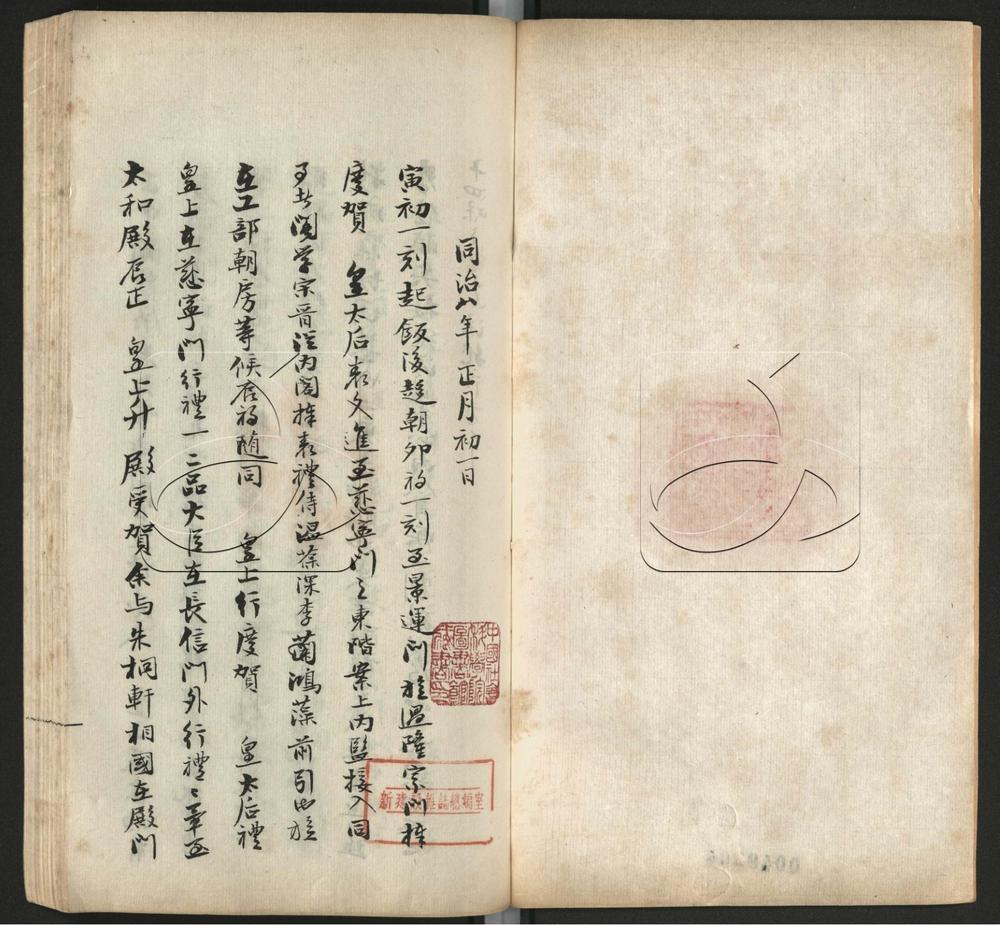 同治八年正月初一日
寅初一刻起飯後趨朝卯初一刻至景運門旋過隆宗門捧
慶賀 皇太后表文進至慈寧門之東階案上內監接入同
事者閣學宗晉從內閣捧表禮侍溫葆深李蘭鴻藻前引也旋
在工部朝房等候辰初隨同 皇上行慶賀 皇太后禮
皇上在慈寧門行禮一二品大臣在長信門外行禮禮畢至
太和殿辰正 皇上升 殿受賀余与朱桐軒相國在殿門
中國社會科學院圖書館藏書
新建設雜誌總編室